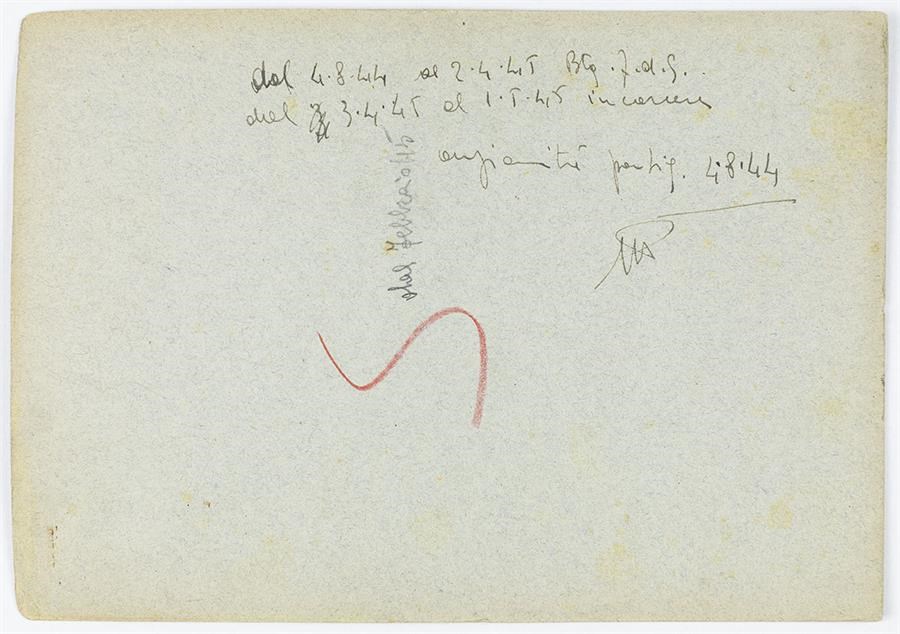 dal 4.8.44 al 2.4.45 Btg. F.d.G..
dal 3.4.45 al 1.5.45 in carcere
anzianità partig. 4.8.44
dal Febbraio 45